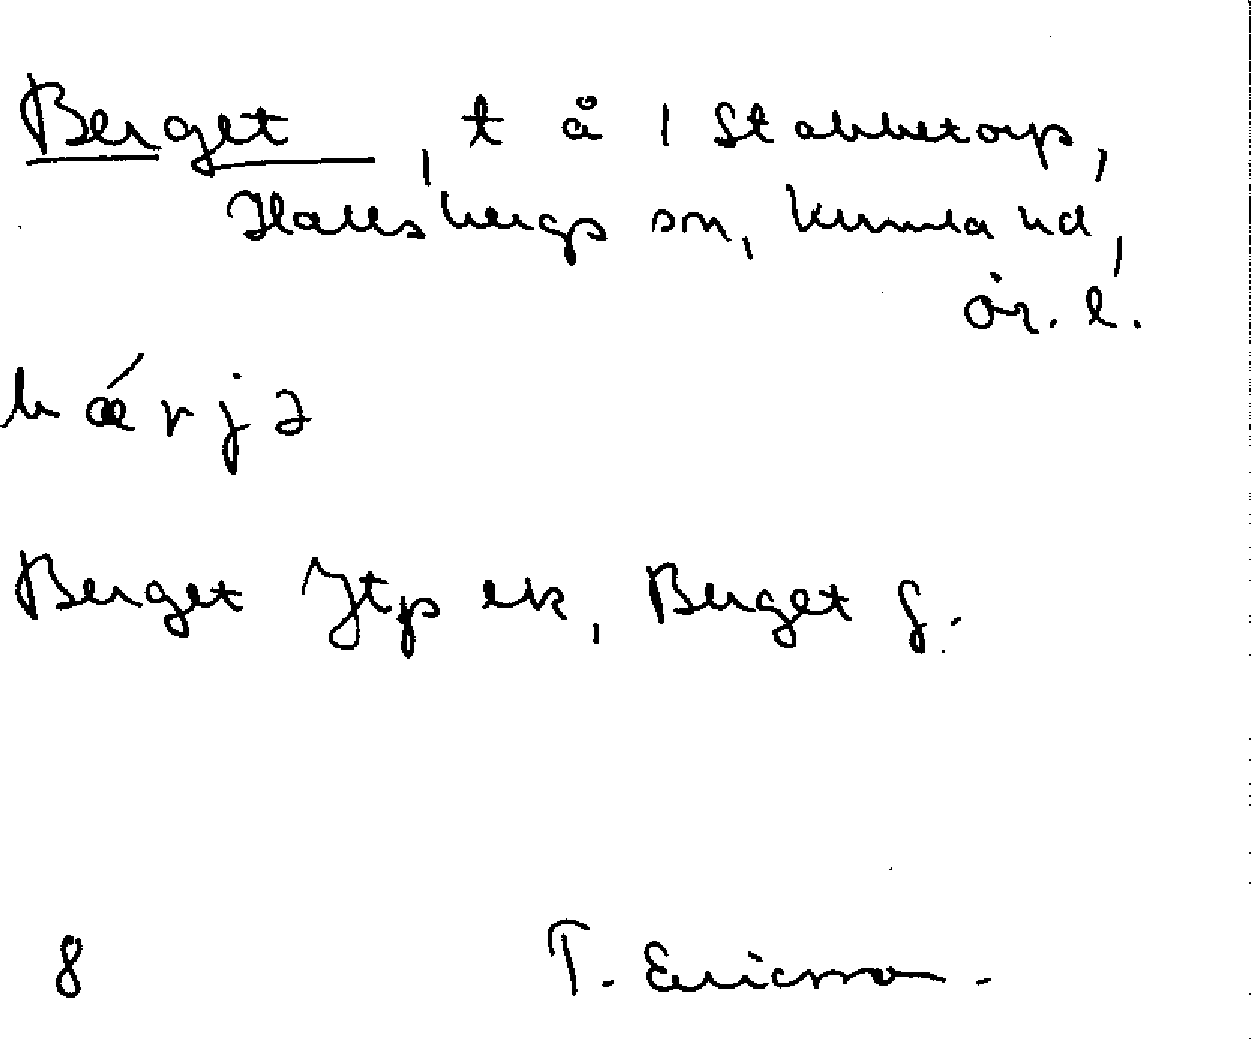 Berget, t å 1 Stabbetorp,
Hallsbergs sn, Kumla hd,
ör. l.
bǽrjə
Berget Jtp ek, Berget g.
8 T. Ericsson.